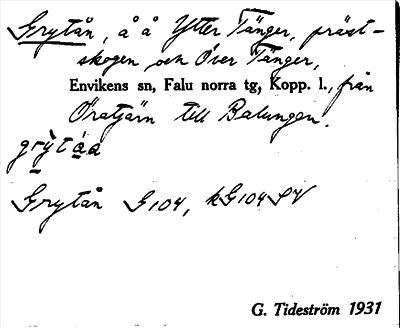 Grytån, å å Ytter Tänger, präst-
skogen och Över Tänger,
Envikens sn, Falu norra tg, Kopp. l., från
Öratjärn till Balungen.
grỳtáa
Grytån G104, kG104SV
G. Tideström 1931